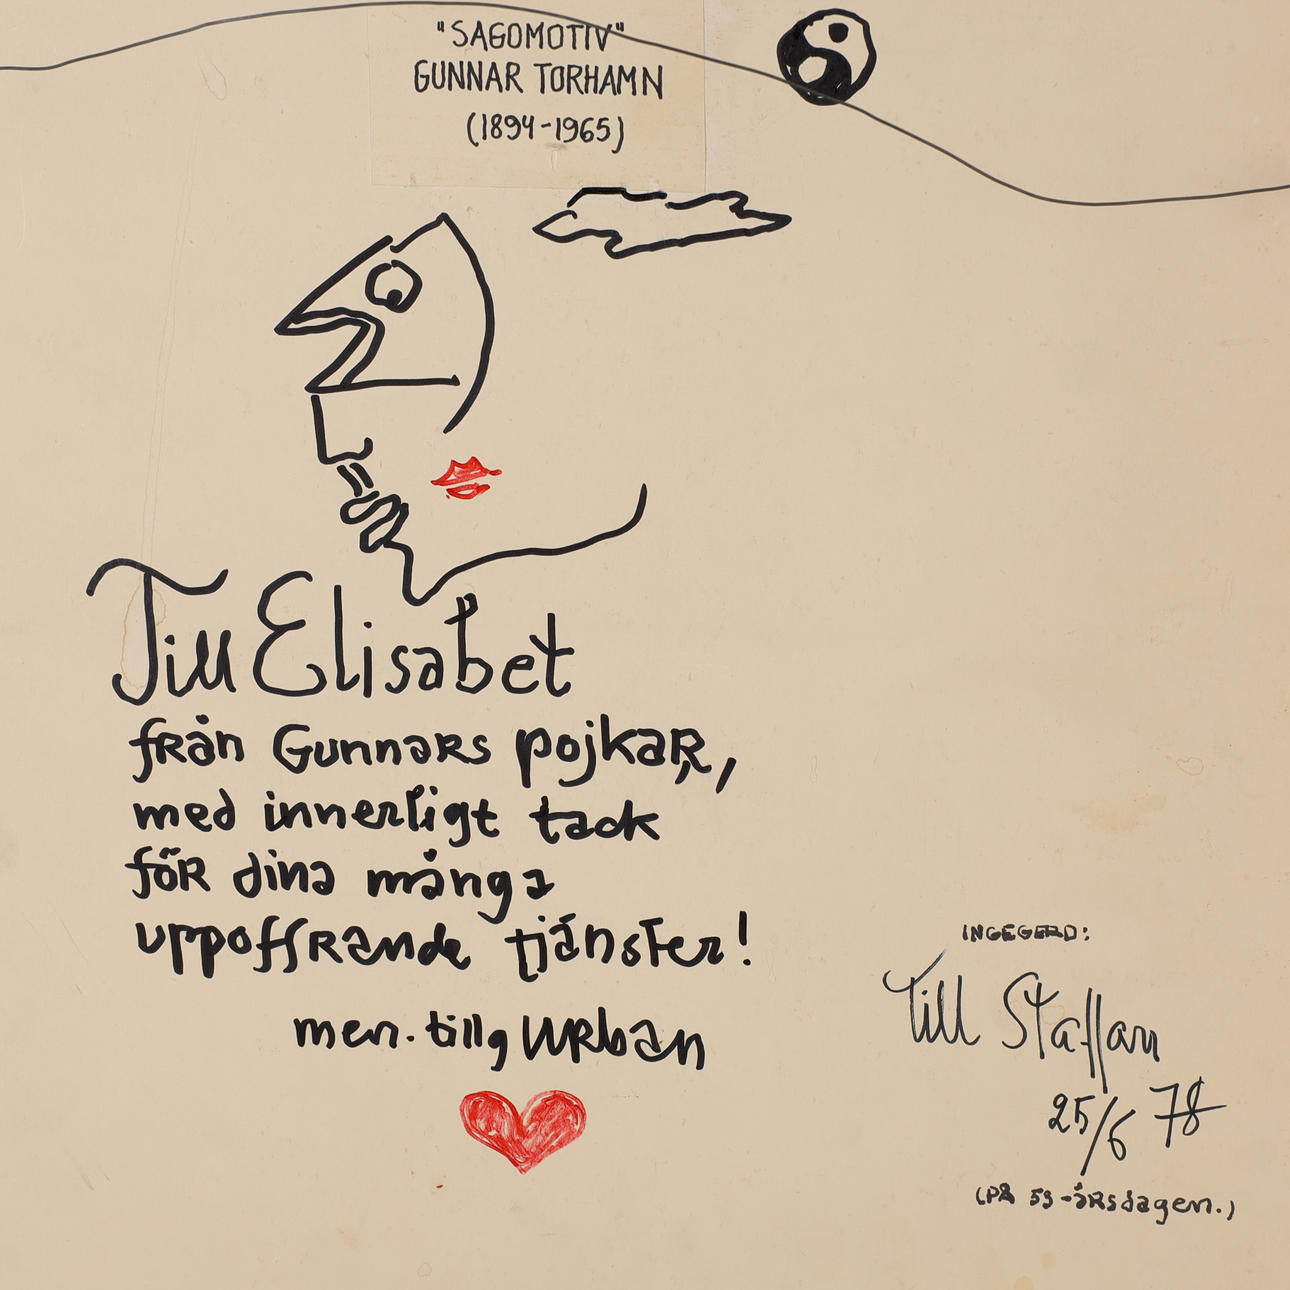 "SAGOMOTIV"
GUNNAR TORHAMN
(1894-1965)
Till Elisabet
från Gunnars pojkar,
med innerligt tack
för dina många
uppoffrande tjänster!
men. tillg Urban
INGEGERD:
Till Staffan
25/6 78
(på 59-årsdagen.)